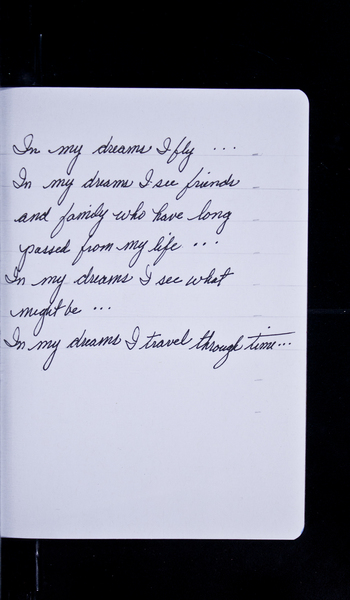 In my dreams I fly ...
In my dreams I see friends
and family who have long
passed from my life ...
In my dreams I see what
might be ...
In my dreams I travel through time...